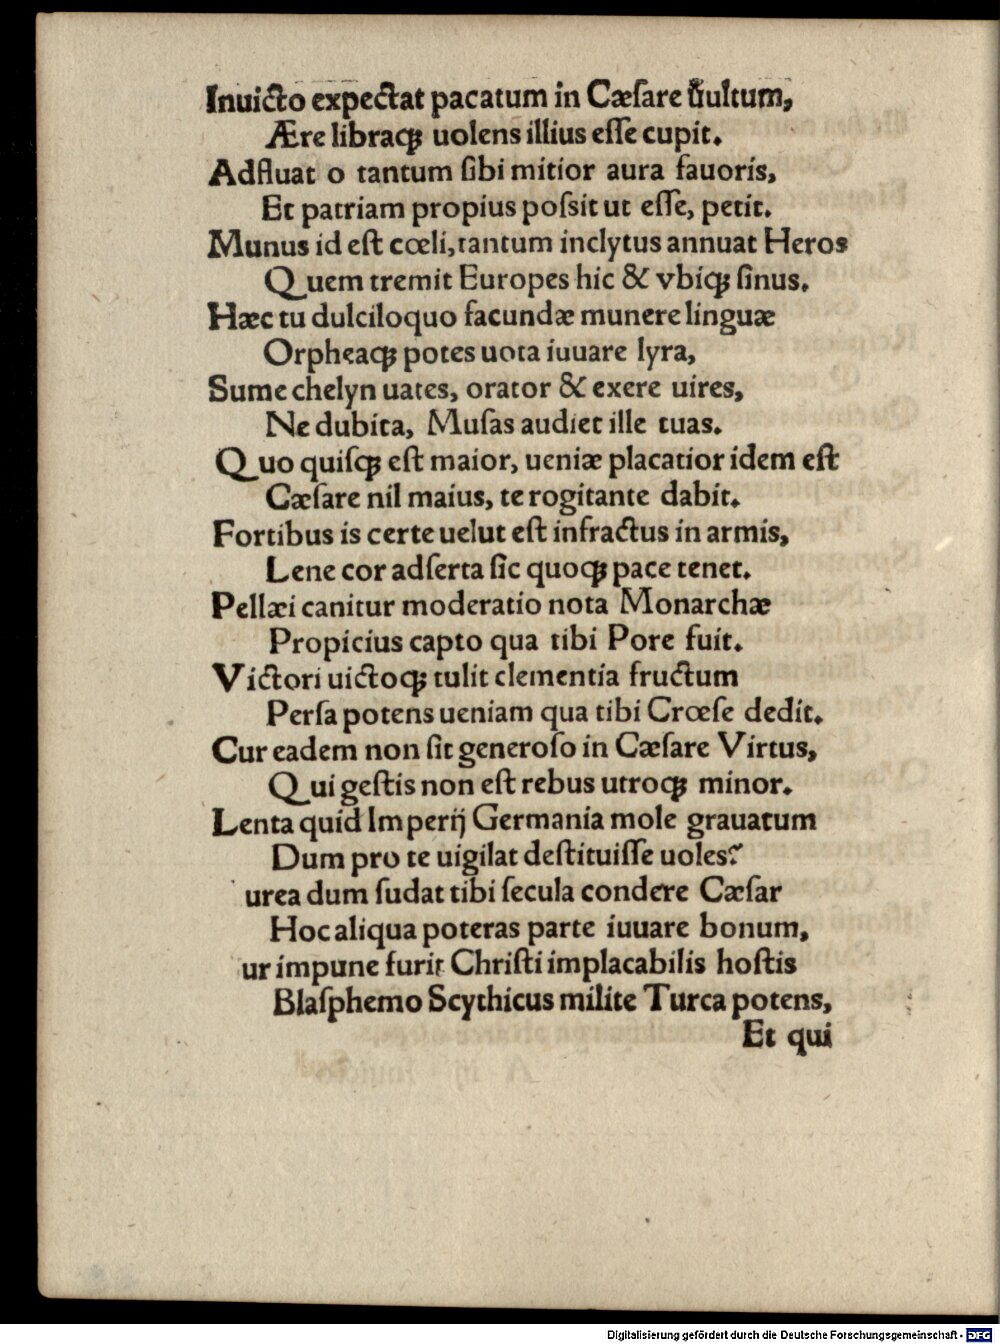 Inuicto expectat pacatum in Cæſare uultum,
Ære libraqꝫ uolens illius eſſe cupit.
Adfluat o tantum ſibi mitior aura fauoris,
Et patriam propius poſsit ut eſſe, petit.
Munus id eſt cœli, tantum inclytus annuat Heros
Quem tremit Europes hic & vbiqꝫ ſinus.
Hæc tu dulciloquo facundæ munere linguæ
Orpheaqꝫ potes uota iuuare lyra,
Sume chelyn uates, orator & exere uires,
Ne dubita, Muſas audiet ille tuas.
Quo quiſqꝫ eſt maior, ueniæ placatior idem eſt
Cæſare nil maius, te rogitante dabit.
Fortibus is certe uelut eſt infractus in armis,
Lene cor adſerta ſic quoqꝫ pace tenet.
Pellæi canitur moderatio nota Monarchæ
Propicius capto qua tibi Pore fuit.
Victori uictoqꝫ tulit clementia fructum
Perſa potens ueniam qua tibi Crœſe dedit.
Cur eadem non ſit generoſo in Cæſare Virtus,
Qui geſtis non eſt rebus utroqꝫ minor.
Lenta quid Imperij Germania mole grauatum
Dum pro te uigilat deſtituiſſe uoles?
urea dum ſudat tibi ſecula condere Cæſar
Hoc aliqua poteras parte iuuare bonum,
ur impune furit Chriſti implacabilis hoſtis
Blaſphemo Scythicus milite Turca potens,
Et qui
Digitalisierung gefördert durch die Deutsche Forschungsgemeinschaft - DFG